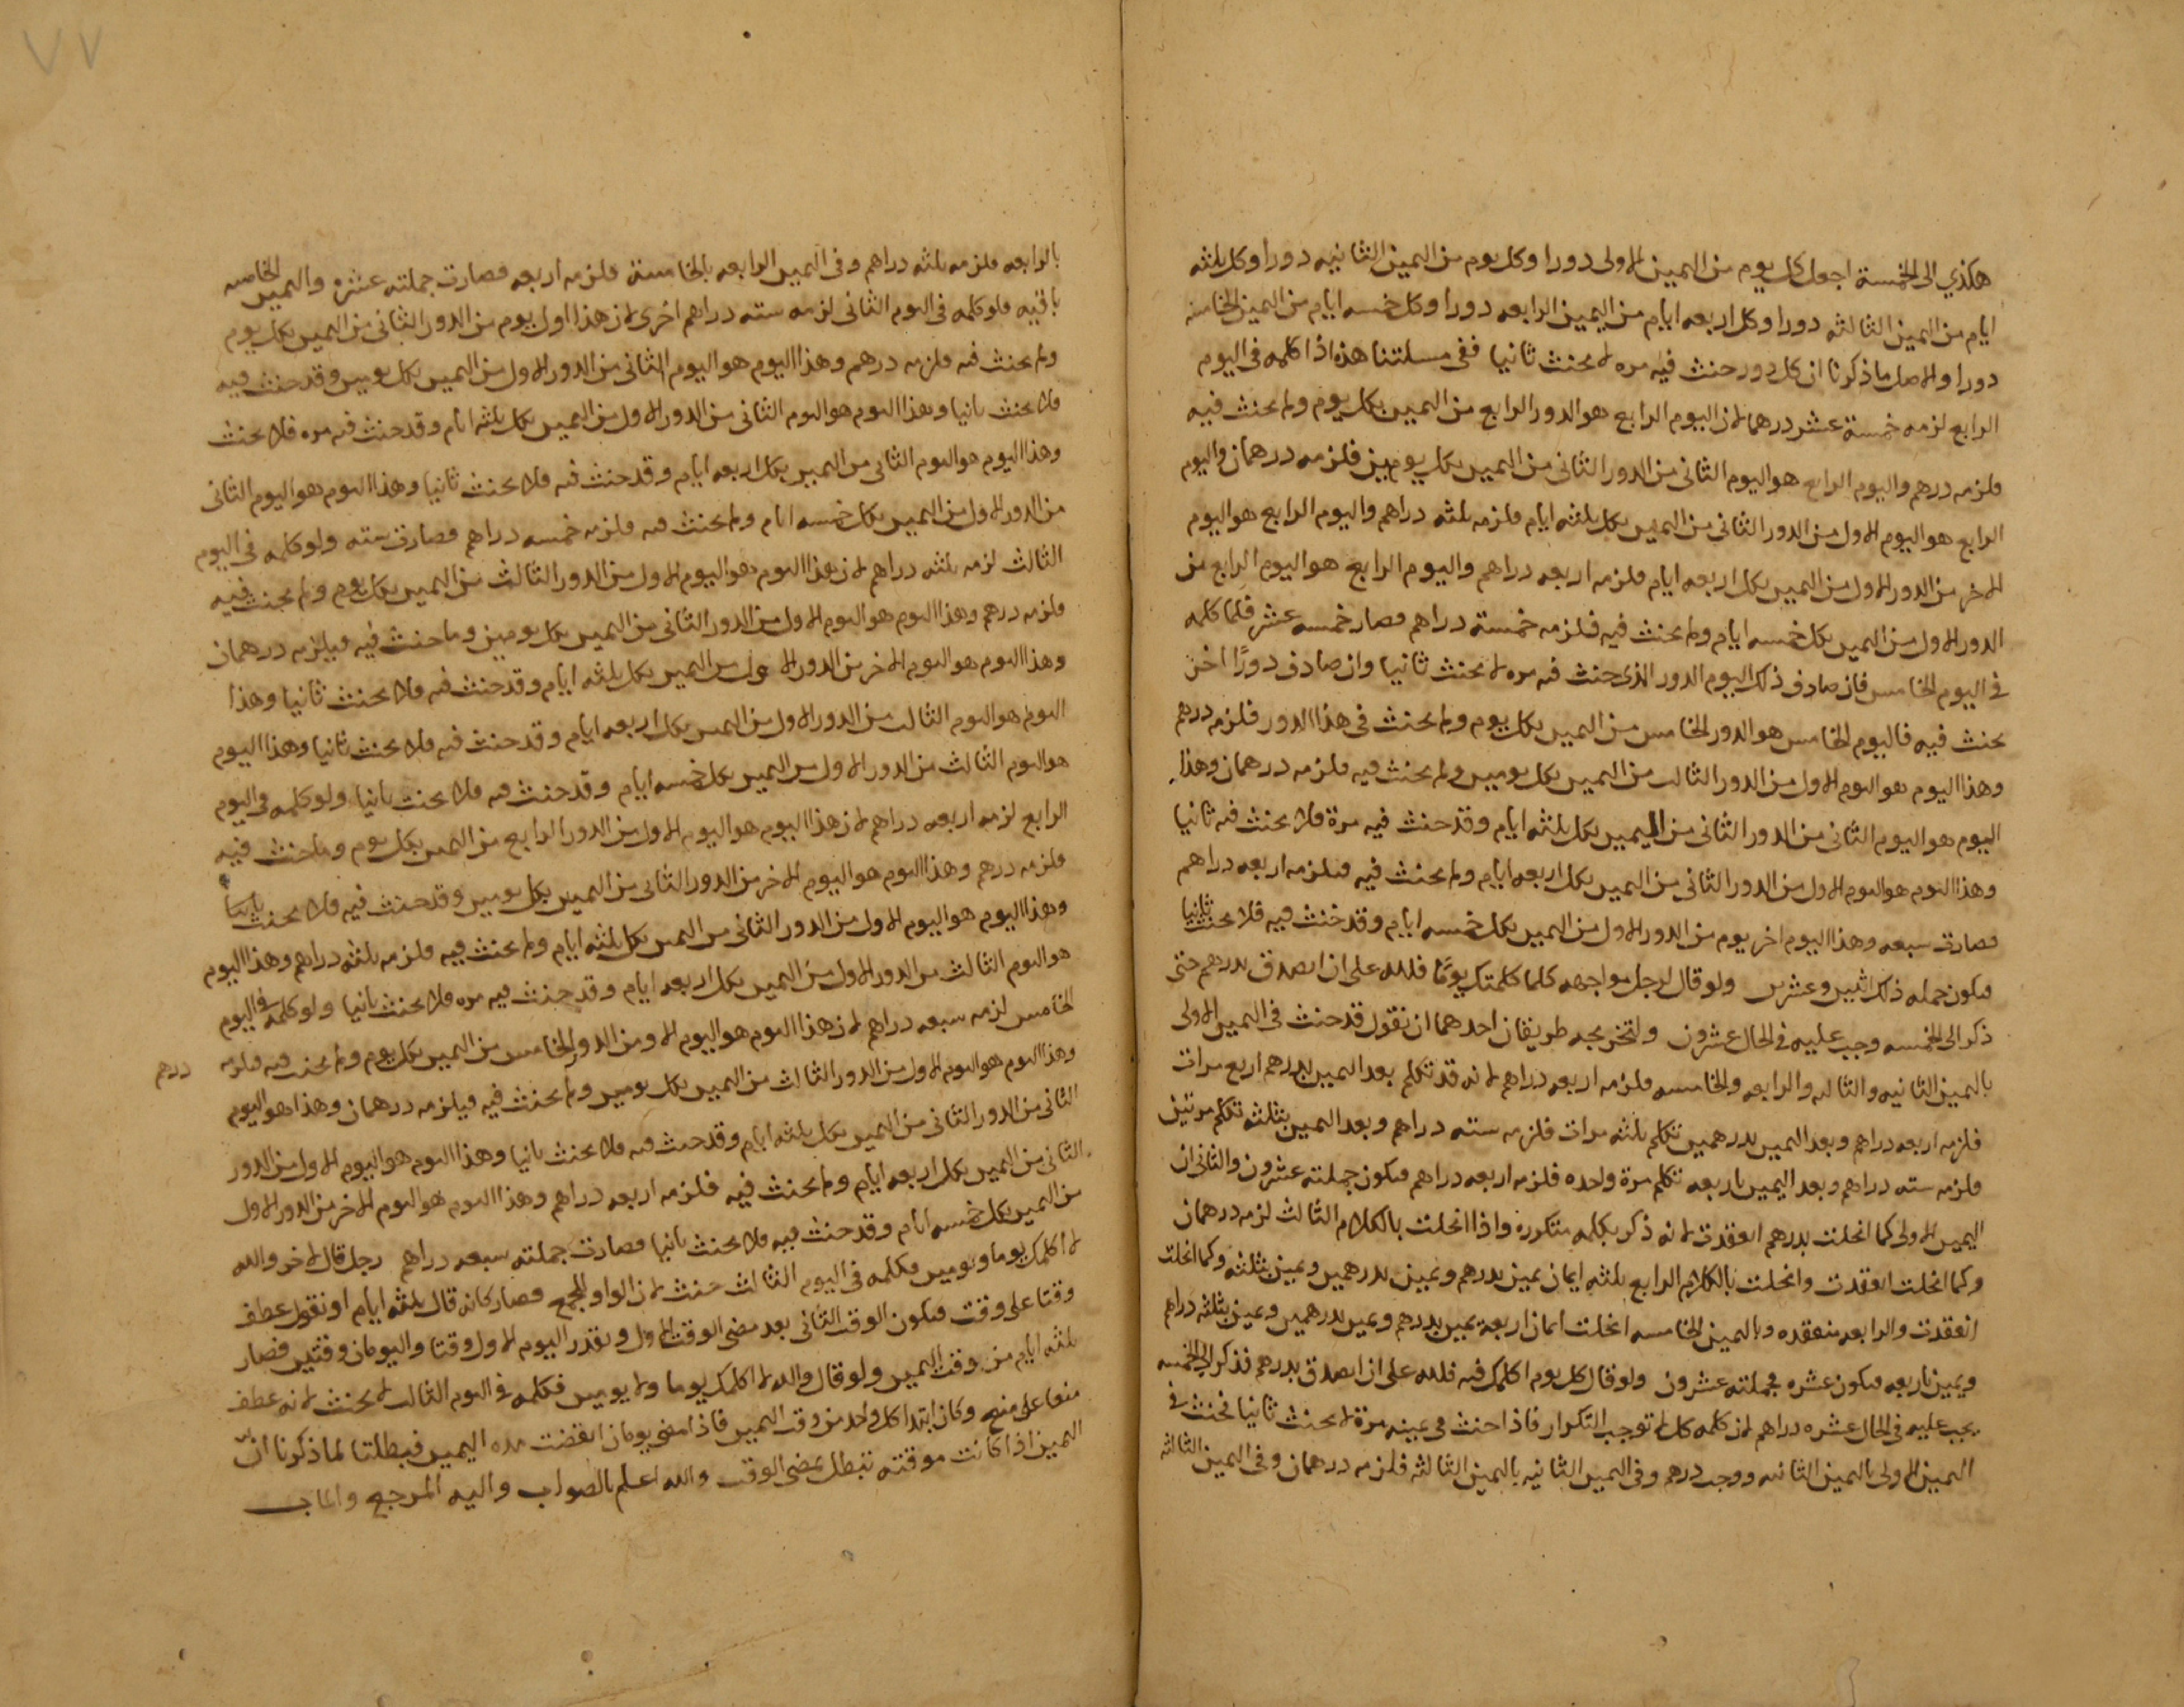 هكذي الى الخمسة اجعل كل يوم من اليمين الاولى دورا وكل يوم من اليمين الثانيه دورا وكل ثلثه
ايام من اليمين الثالثه دورا وكل اربعه ايام من اليمين الرابعه دورا وكل خمسه ايام من اليمين الخامسه
دورا والاصل ما ذكرنا ان كل دور حنث فيه مره لا يحنث ثانيا ففي مسلتنا هذه اذا كلمه في اليوم
الرابع لزمه خمسة عشر درهما لان اليوم الرابع هو الدور الرابع من اليمين بكل يوم ولم يحنث فيه
فلزمه درهم واليوم الرابع هو اليوم الثاني من الدور الثاني من اليمين بكل يومين فلزمه درهمان واليوم
الرابع هو اليوم الاول من الدور الثاني من اليمين بكل ثلثه ايام فلزمه ثلثه دراهم واليوم الرابع هو اليوم
الاخر من الدور الاول من اليمين بكل اربعه ايام فلزمه اربعه دراهم واليوم الرابع هو اليوم الرابع من
الدور الاول من اليمين بكل خمسه ايام ولم يحنث فيه فلزمه خمسة دراهم فصار خمسه عشر فلما كلمه
في اليوم الخامس فان صادف ذلك اليوم الدور الذي حنث فيه مره لا يحنث ثانيا وان صادف دورًا اخر
يحنث فيه فاليوم الخامس هو الدور الخامس من اليمين بكل يوم ولم يحنث في هذا الدور فلزمه درهم
وهذا اليوم هو اليوم الاول من الدور الثالث من اليمين بكل يومين ولم يحنث فيه فلزمه درهمان وهذا
اليوم هو اليوم الثاني من الدور الثاني من اليمين بكل ثلثه ايام وقد حنث فيه مرة فلا يحنث فيه ثانيا
وهذا اليوم هو اليوم الاول من الدور الثاني من اليمين بكل اربعه ايام ولم يحنث فيه فيلزمه اربعه دراهم
فصارت سبعه وهذا اليوم اخر يوم من الدور الاول من اليمين بكل خمسه ايام وقد حنث فيه فلا يحنث ثانيا
فيكون جمله ذلك اثنين وعشرين ولو قال لرجل مواجهه كلما كلمتك يومًا فلله على ان اتصدق بدرهم حتى
ذكر الى الخمسه وجب عليه في الحال عشرون ولتخريجه طريقان احدهما ان نقول قد حنث في اليمين الاولى
باليمين الثانيه والثالثه والرابعه والخامسه فلزمه اربعه دراهم لانه قد تكلم بعد اليمين بدرهم اربع مرات
فلزمه اربعه دراهم وبعد اليمين بدرهمين تكلم ثلثه مرات فلزمه سته دراهم وبعد اليمين بثلثه تكلم مرتين
فلزمه سته دراهم وبعد اليمين باربعه تكلم مرة واحده فلزمه اربعه دراهم فيكون جملته عشرون والثاني ان
اليمين الاولى كما انحلت بدرهم انعقدت لانه ذكر بكلمه متكرره واذا انحلت بالكلام الثالث لزمه درهمان
وكما انحلت انعقدت وانحلت بالكلام الرابع ثلثه ايمان يمين بدرهم ويمين بدرهمين ويمين بثلثه وكما انحلت
انعقدت والرابعه منعقده وباليمين الخامسه انحلت ايمان اربعة يمين بدرهم ويمين بدرهمين ويمين بثلثه دراهم
ويمين باربعه فيكون عشره فجملته عشرون ولو قال كل يوم اكلمك فيه فلله على ان اتصدق بدرهم فذكر الى الخمسه
يجب عليه في الحال عشره دراهم لان كلمه كل لا توجب التكرار فاذا حنث في يمينه مرة لا يحنث ثانيا فحنث في
اليمين الاولى باليمين الثانيه ووجب درهم وفي اليمين الثانيه باليمين الثالثه فلزمه درهمان وفي اليمين الثالثه
٧٧
بالرابعه فلزمه ثلثه دراهم وفي اليمين الرابعه بالخامسة فلزمه اربعه فصارت جملته عشره واليمين الخامسه
باقيه فلو كلمه في اليوم الثاني لزمه سته دراهم اخرى لان هذا اول يوم من الدور الثاني من اليمين بكل يوم
ولم يحنث فيه فلزمه درهم وهذا اليوم هو اليوم الثاني من الدور الاول من اليمين بكل يومين وقد حنث فيه
فلا يحنث ثانيا وهذا اليوم هو اليوم الثاني من الدور الاول من اليمين بكل ثلثه ايام وقد حنث فيه مره فلا يحنث
وهذا اليوم هو اليوم الثاني من اليمين بكل اربعه ايام وقد حنث فيه فلا يحنث ثانيا وهذا اليوم هو اليوم الثاني
من الدور الاول من اليمين بكل خمسه ايام ولم يحنث فيه فلزمه خمسه دراهم فصارت سته ولو كلمه في اليوم
الثالث لزمه ثلثه دراهم لان هذا اليوم هو اليوم الاول من الدور الثالث من اليمين بكل يوم ولم يحنث فيه
فلزمه درهم وهذا اليوم هو اليوم الاول من الدور الثاني من اليمين بكل يومين وما حنث فيه فيلزمه درهمان
وهذا اليوم هو اليوم الاخر من الدور الاول من اليمين بكل ثلثه ايام وقد حنث فيه فلا يحنث ثانيا وهذا
اليوم هو اليوم الثالث من الدور الاول من اليمين بكل اربعه ايام وقد حنث فيه فلا يحنث ثانيا وهذا اليوم
هو اليوم الثالث من الدور الاول من اليمين بكل خمسه ايام وقد حنث فيه فلا يحنث ثانيا ولو كلمه في اليوم
الرابع لزمه اربعه دراهم لان هذا اليوم هو اليوم الاول من الدور الرابع من اليمين بكل يوم وما حنث فيه
فلزمه درهم وهذا اليوم هو اليوم الاخر من الدور الثاني من اليمين بكل يومين وقد حنث فيه فلا يحنث ثانيا
وهذا اليوم هو اليوم الاول من الدور الثاني من اليمين بكل ثلثه ايام ولم يحنث فيه فلزمه ثلثه دراهم وهذا اليوم
هو اليوم الثالث من الدور الاول من اليمين بكل اربعه ايام وقد حنث فيه مره فلا يحنث ثانيا ولو كلمه في اليوم
الخامس لزمه سبعه دراهم لان هذا اليوم هو اليوم الاو من الدور الخامس من اليمين بكل يوم ولم يحنث فيه فلزمه درهم
وهذا اليوم هو اليوم الاول من الدور الثالث من اليمين بكل يومين ولم يحنث فيه فيلزمه درهمان وهذا هو اليوم
الثاني من الدور الثاني من اليمين بكل ثلثه ايام وقد حنث فيه فلا يحنث ثانيا وهذا اليوم هو اليوم الاول من الدور
الثاني من اليمين بكل اربعه ايام ولم يحنث فيه فلزمه اربعه دراهم وهذا اليوم هو اليوم الاخر من الدور الاول
من اليمين بكل خمسه ايام وقد حنث فيه فلا يحنث ثانيا فصارت جملته سبعه دراهم رجل قال لاخر والله
لا اكلمك يوما ويومين فكلمه في اليوم الثالث حنث لان الواو للجمع فصار كانه قال ثلثه ايام او نقول عطف
وقتا على وقت فيكون الوقت الثاني بعد مضي الوقت الاول ونقدر اليوم الاول وقتا واليومان وقتين فصار
ثلثه ايام من وقت اليمين ولو قال والله لا اكلمك يوما ولا يومين فكلمه في اليوم الثالث لا يحنث لانه عطف
منعا على منع وكان ابتدا كل واحد من وقت اليمين فاذا مضى يومان انقضت مده اليمين فبطلتا لما ذكرنا انّ
اليمين اذا كانت موقته تبطل بمضي الوقت والله اعلم بالصواب واليه المرجع والماب